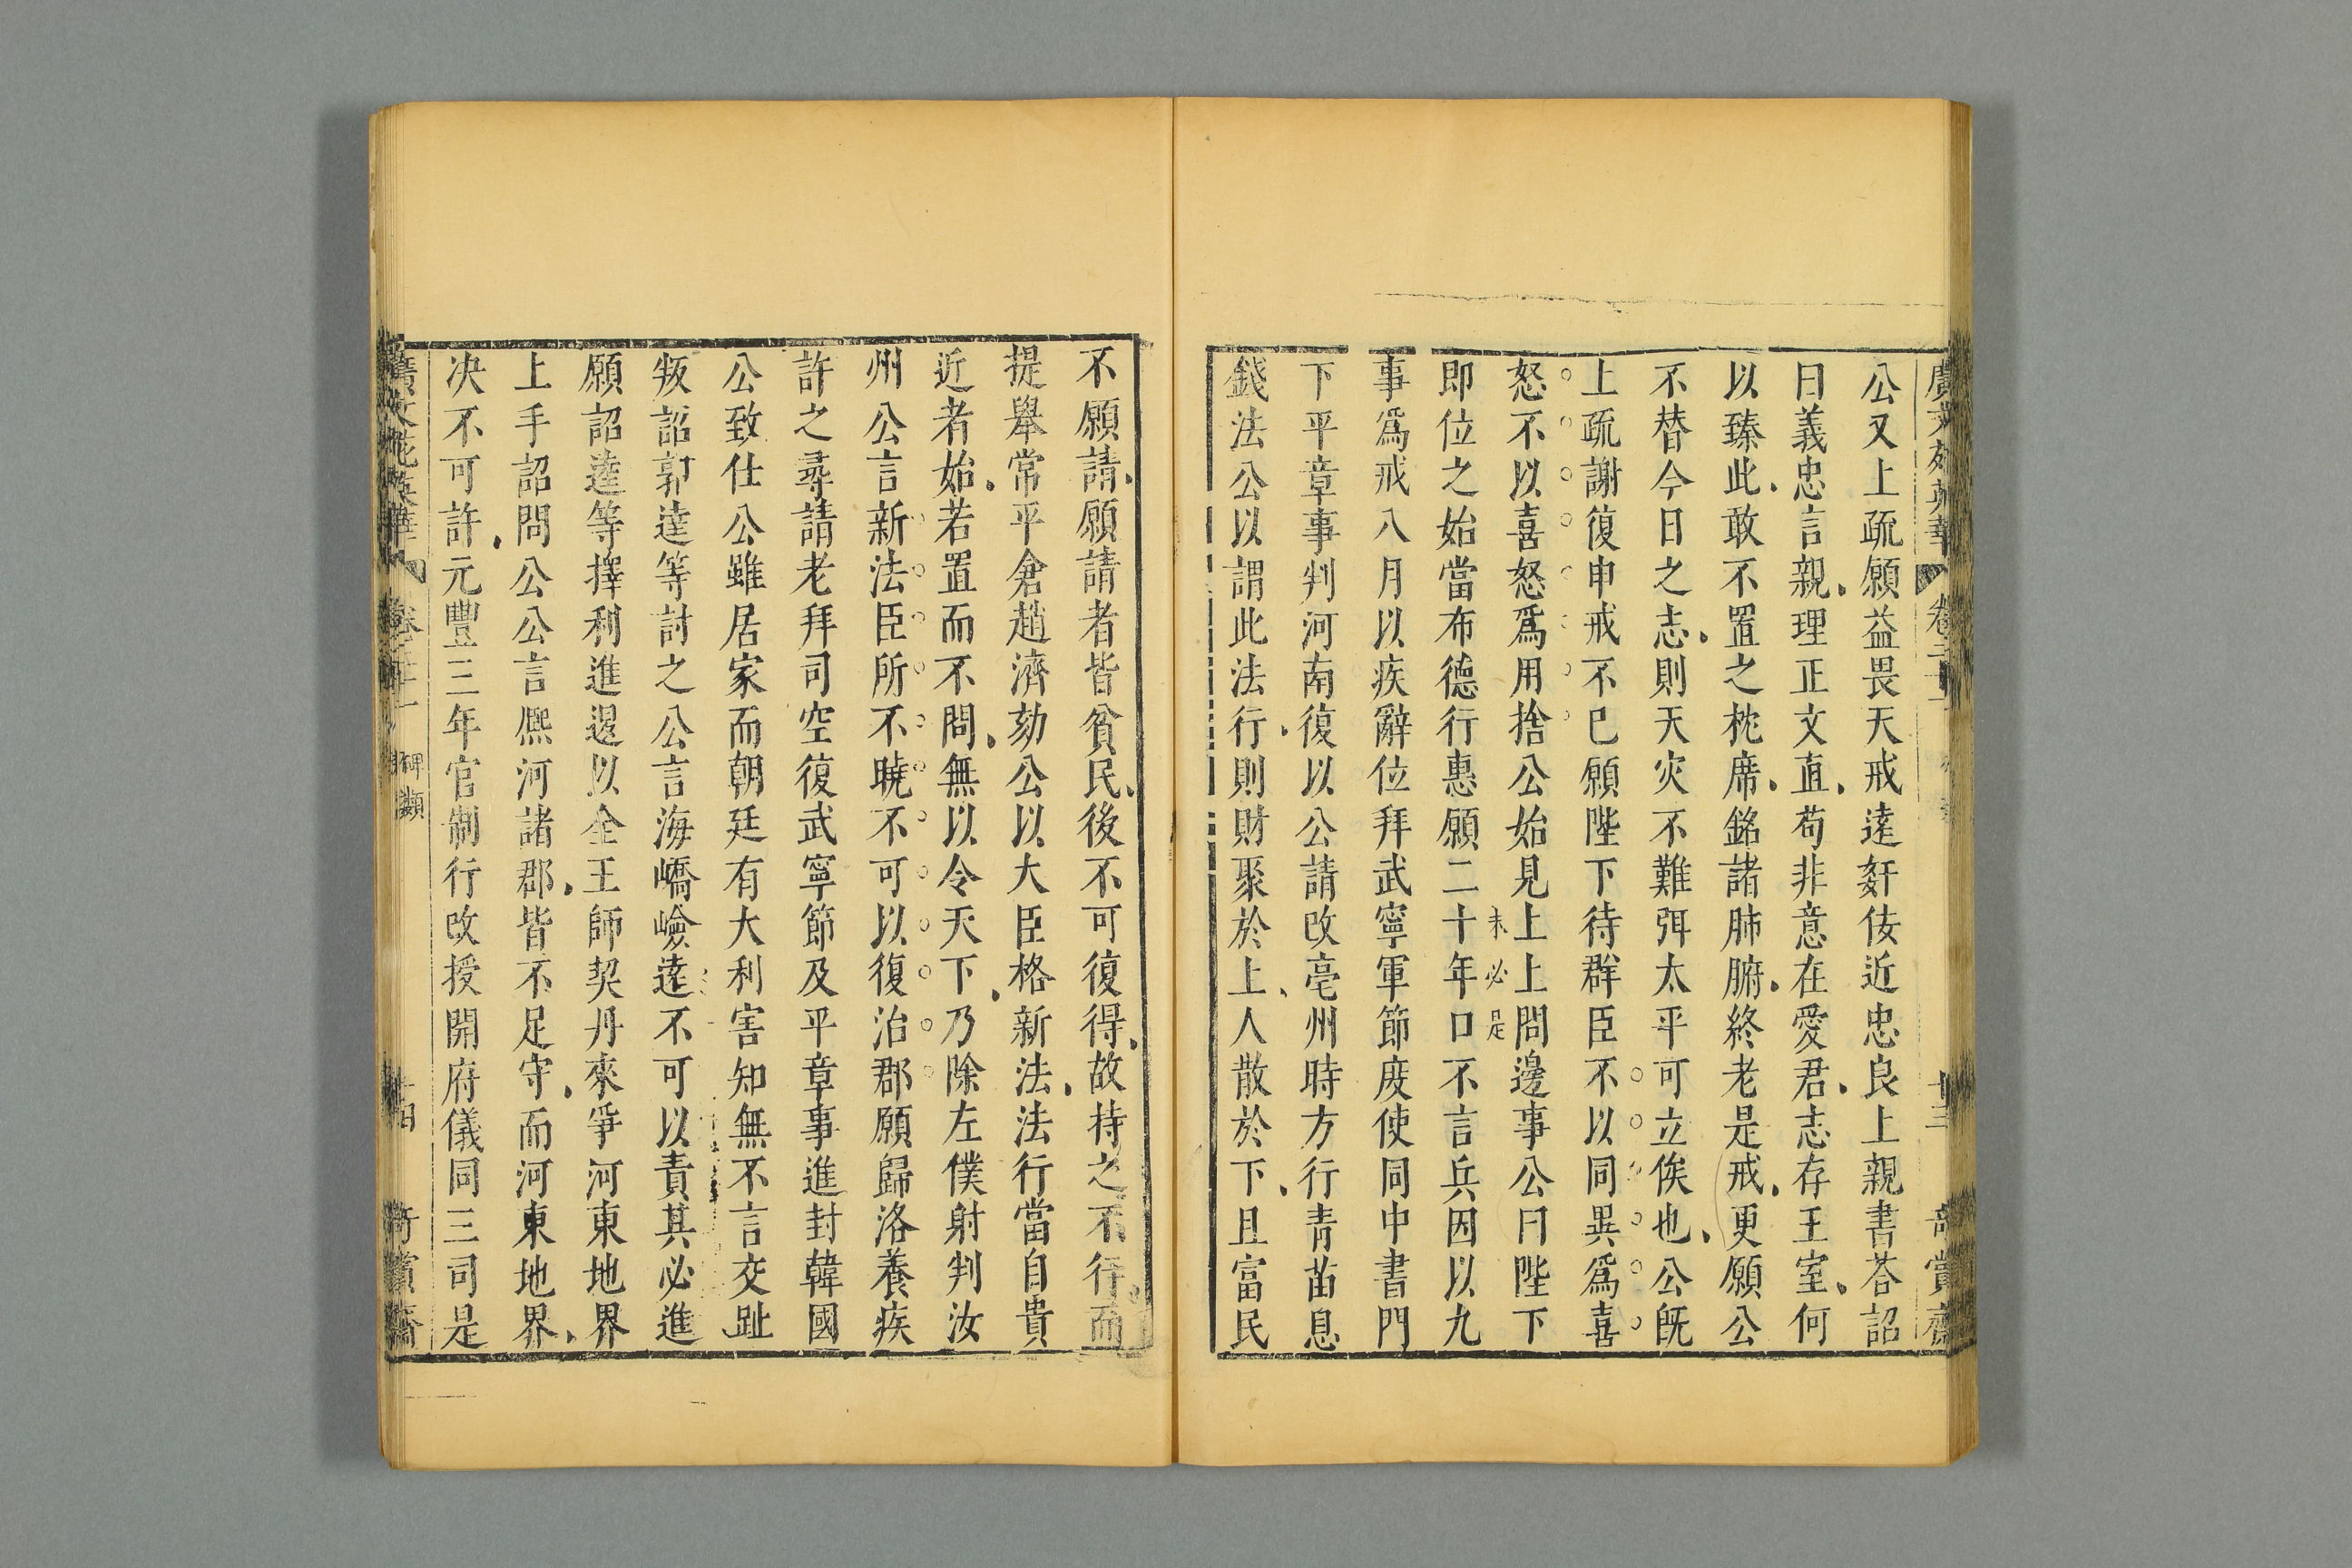 公又上疏願益畏天戒遠奸佞近忠良上親書荅詔
曰義忠言親理正文直苟非意在愛君志存王室何
以臻此敢不置之枕席銘諸肺腑終老是戒更願公
不替今日之志則天灾不難弭太平可立俟也公既
上疏謝復申戒不已願陛下待群臣不以同異爲喜
怒不以喜怒爲用捨公始見上上問邊事公曰陛下
未必是
即位之始當布德行惠願二十年口不言兵因以九
事爲戒八月以疾辭位拜武寧軍節度使同中書門
下平章事判河南復以公請改亳州時方行青苗息
錢法公以謂此法行則財聚於上人散於下且富民
不願請願請者皆貧民後不可復得故持之不行而
提舉常平倉趙濟劾公以大臣格新法法行當自貴
近者始若置而不問無以令天下乃除左僕射判汝
州公言新法臣所不曉不可以復治郡願歸洛養疾
許之尋請老拜司空復武寧節及平章事進封韓國
公致仕公雖居家而朝廷有大利害知無不言交趾
叛詔郭逵等討之公言海嶠嶮遠不可以責其必進
願詔逵等擇利進退以全王師契丹來爭河東地界
上手詔問公公言熈河諸郡皆不足守而河東地界
决不可許元豐三年官制行改授開府儀同三司是
廣文苑英華 卷二十一 碑類 十四 奇賞齋